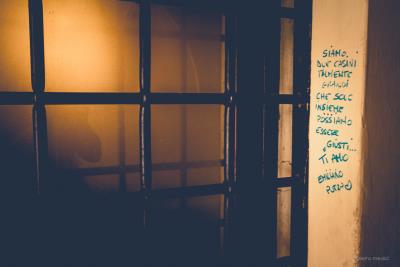 SIAMO.
DUE CASINI
TALMENTE
GRANDI
CHE SOLO
INSIEME
POSSIAMO
ESSERE
GIUSTI...
TI AMO
EMILIANO